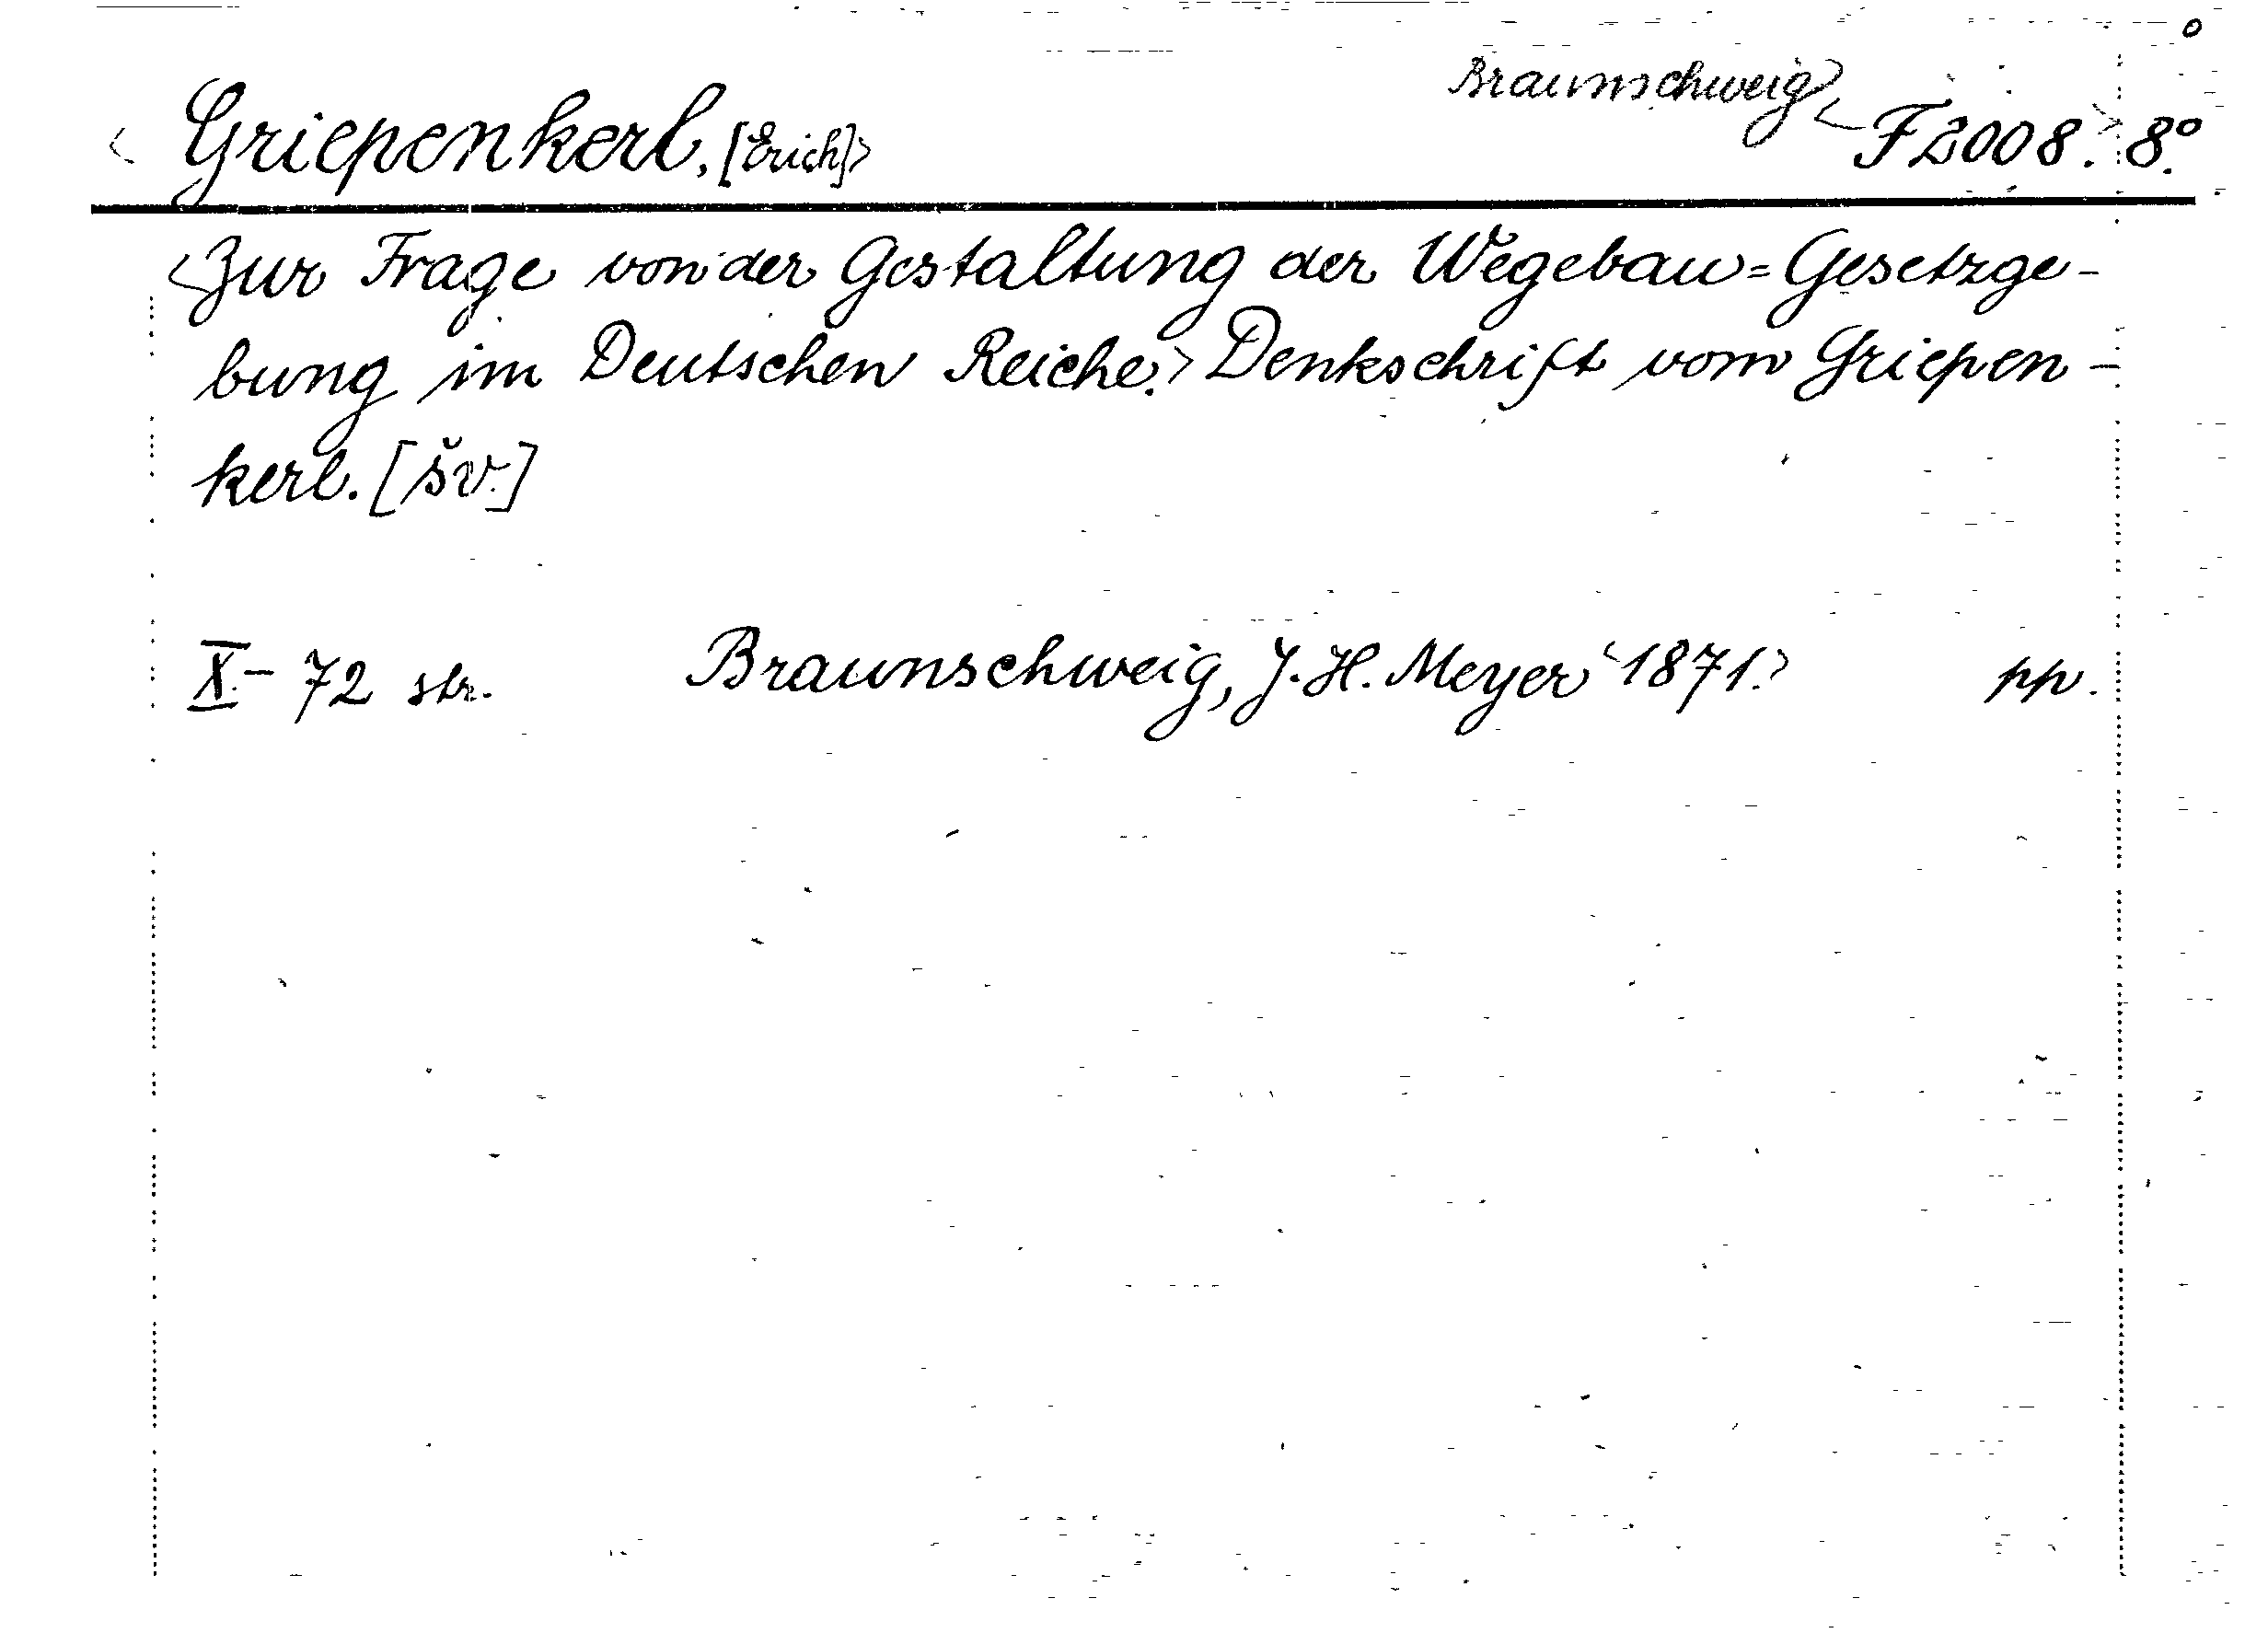 Braunschweig>
<Griepenkerl, [Erich]> <F 2008.> 8°.
<Zur Frage von der Gestaltung der Wegebau=Gesetzge-
bung im Deutschen Reiche.> Denkschrift vom Griepen-
kerl. [šv.]
X.- 72 str. Braunschweig, J. H. Meyer <1871.> pp.